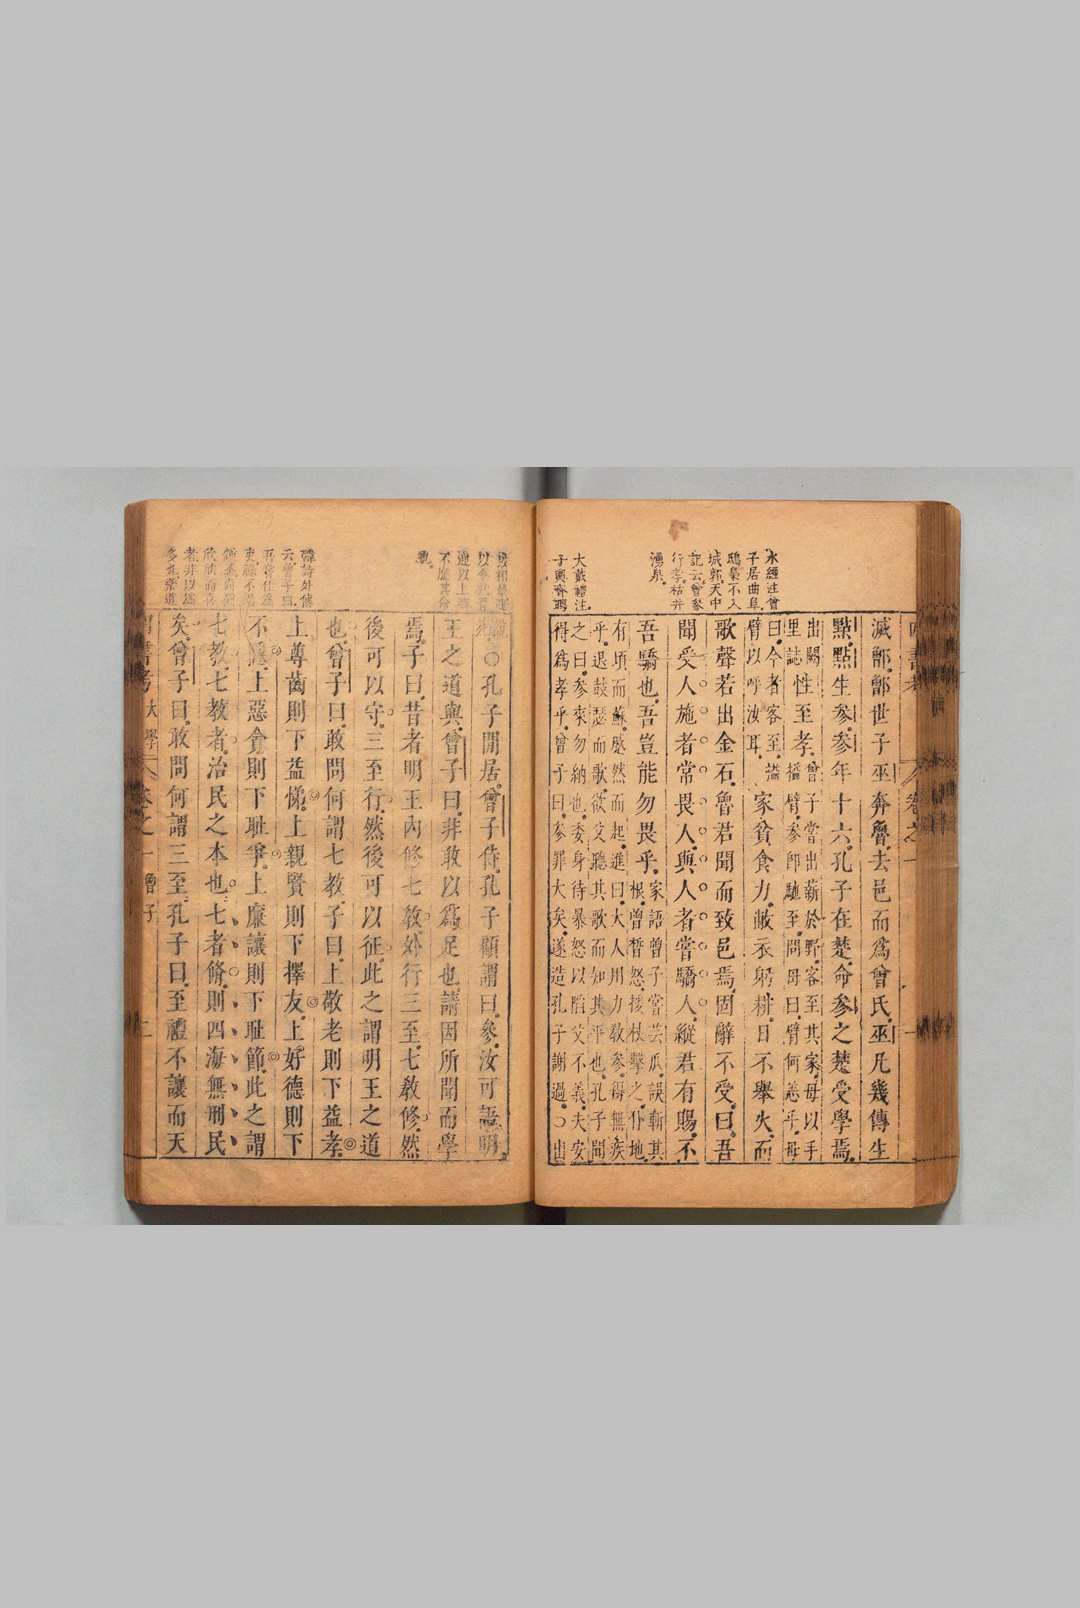 四書考 卷之一
水經注曾
子居曲阜
鴟梟不入
城郭天中
記云曾參
行孝枯井
湧泉。
大戴禮注
子輿齊聘
滅鄫.鄫世子巫奔魯.去邑而為曾氏.巫凡幾傳生
點.點生參.參年十六.孔子在楚.命參之楚受學焉.
出闕里誌 性至孝.曾子嘗出薪於野.客至其家.母以手
搤臂.參即馳至.問母曰臂何恙乎.母
曰.今者客至.搤
臂以呼汝耳.家貧食力.敝衣躬耕.日不舉火.而
歌聲若出金石.魯君聞而致邑焉.固辭不受曰.吾
聞受人施者常畏人.與人者嘗驕人.縱君有賜.不
吾驕也.吾豈能勿畏乎.家語曾子嘗芸瓜.誤斬其
根.曾晳怒.援杖擊之.仆地.
有頃而蘇.蹙然而起.進曰.大人用力教參.得無疾
乎.退鼓瑟而歌.欲父聽其歌而知其平也.孔子聞
之曰.參來勿納也.委身待暴怒以陷父不義.夫安
得為孝乎.曾子曰.參罪大矣.遂造孔子謝過.○出
韓詩外傳
云曾子曰
吾嘗仕為
吏祿不過
欣欣而喜
者非以為
多也樂道
○孔子閒居.曾子侍.孔子顧謂曰.參.汝可語明
王之道與.曾子曰.非敢以為足也.請因所聞而學
焉.子曰.昔者明王內修七教.外行三至.七教修.然
後可以守.三至行.然後可以征.此之謂明王之道
也.曾子曰.敢問何謂七教.子曰.上敬老則下益孝.
上尊齒則下益悌.上親賢則下擇友.上好德則下
不隱.上惡貪則下恥爭.上廉讓則下恥節.此之謂
七教.七教者.治民之本也.七者脩.則四海無刑民
矣.曾子曰.敢問何謂三至.孔子曰.至禮不讓而天
四書考 大學 卷之一 曾子 二